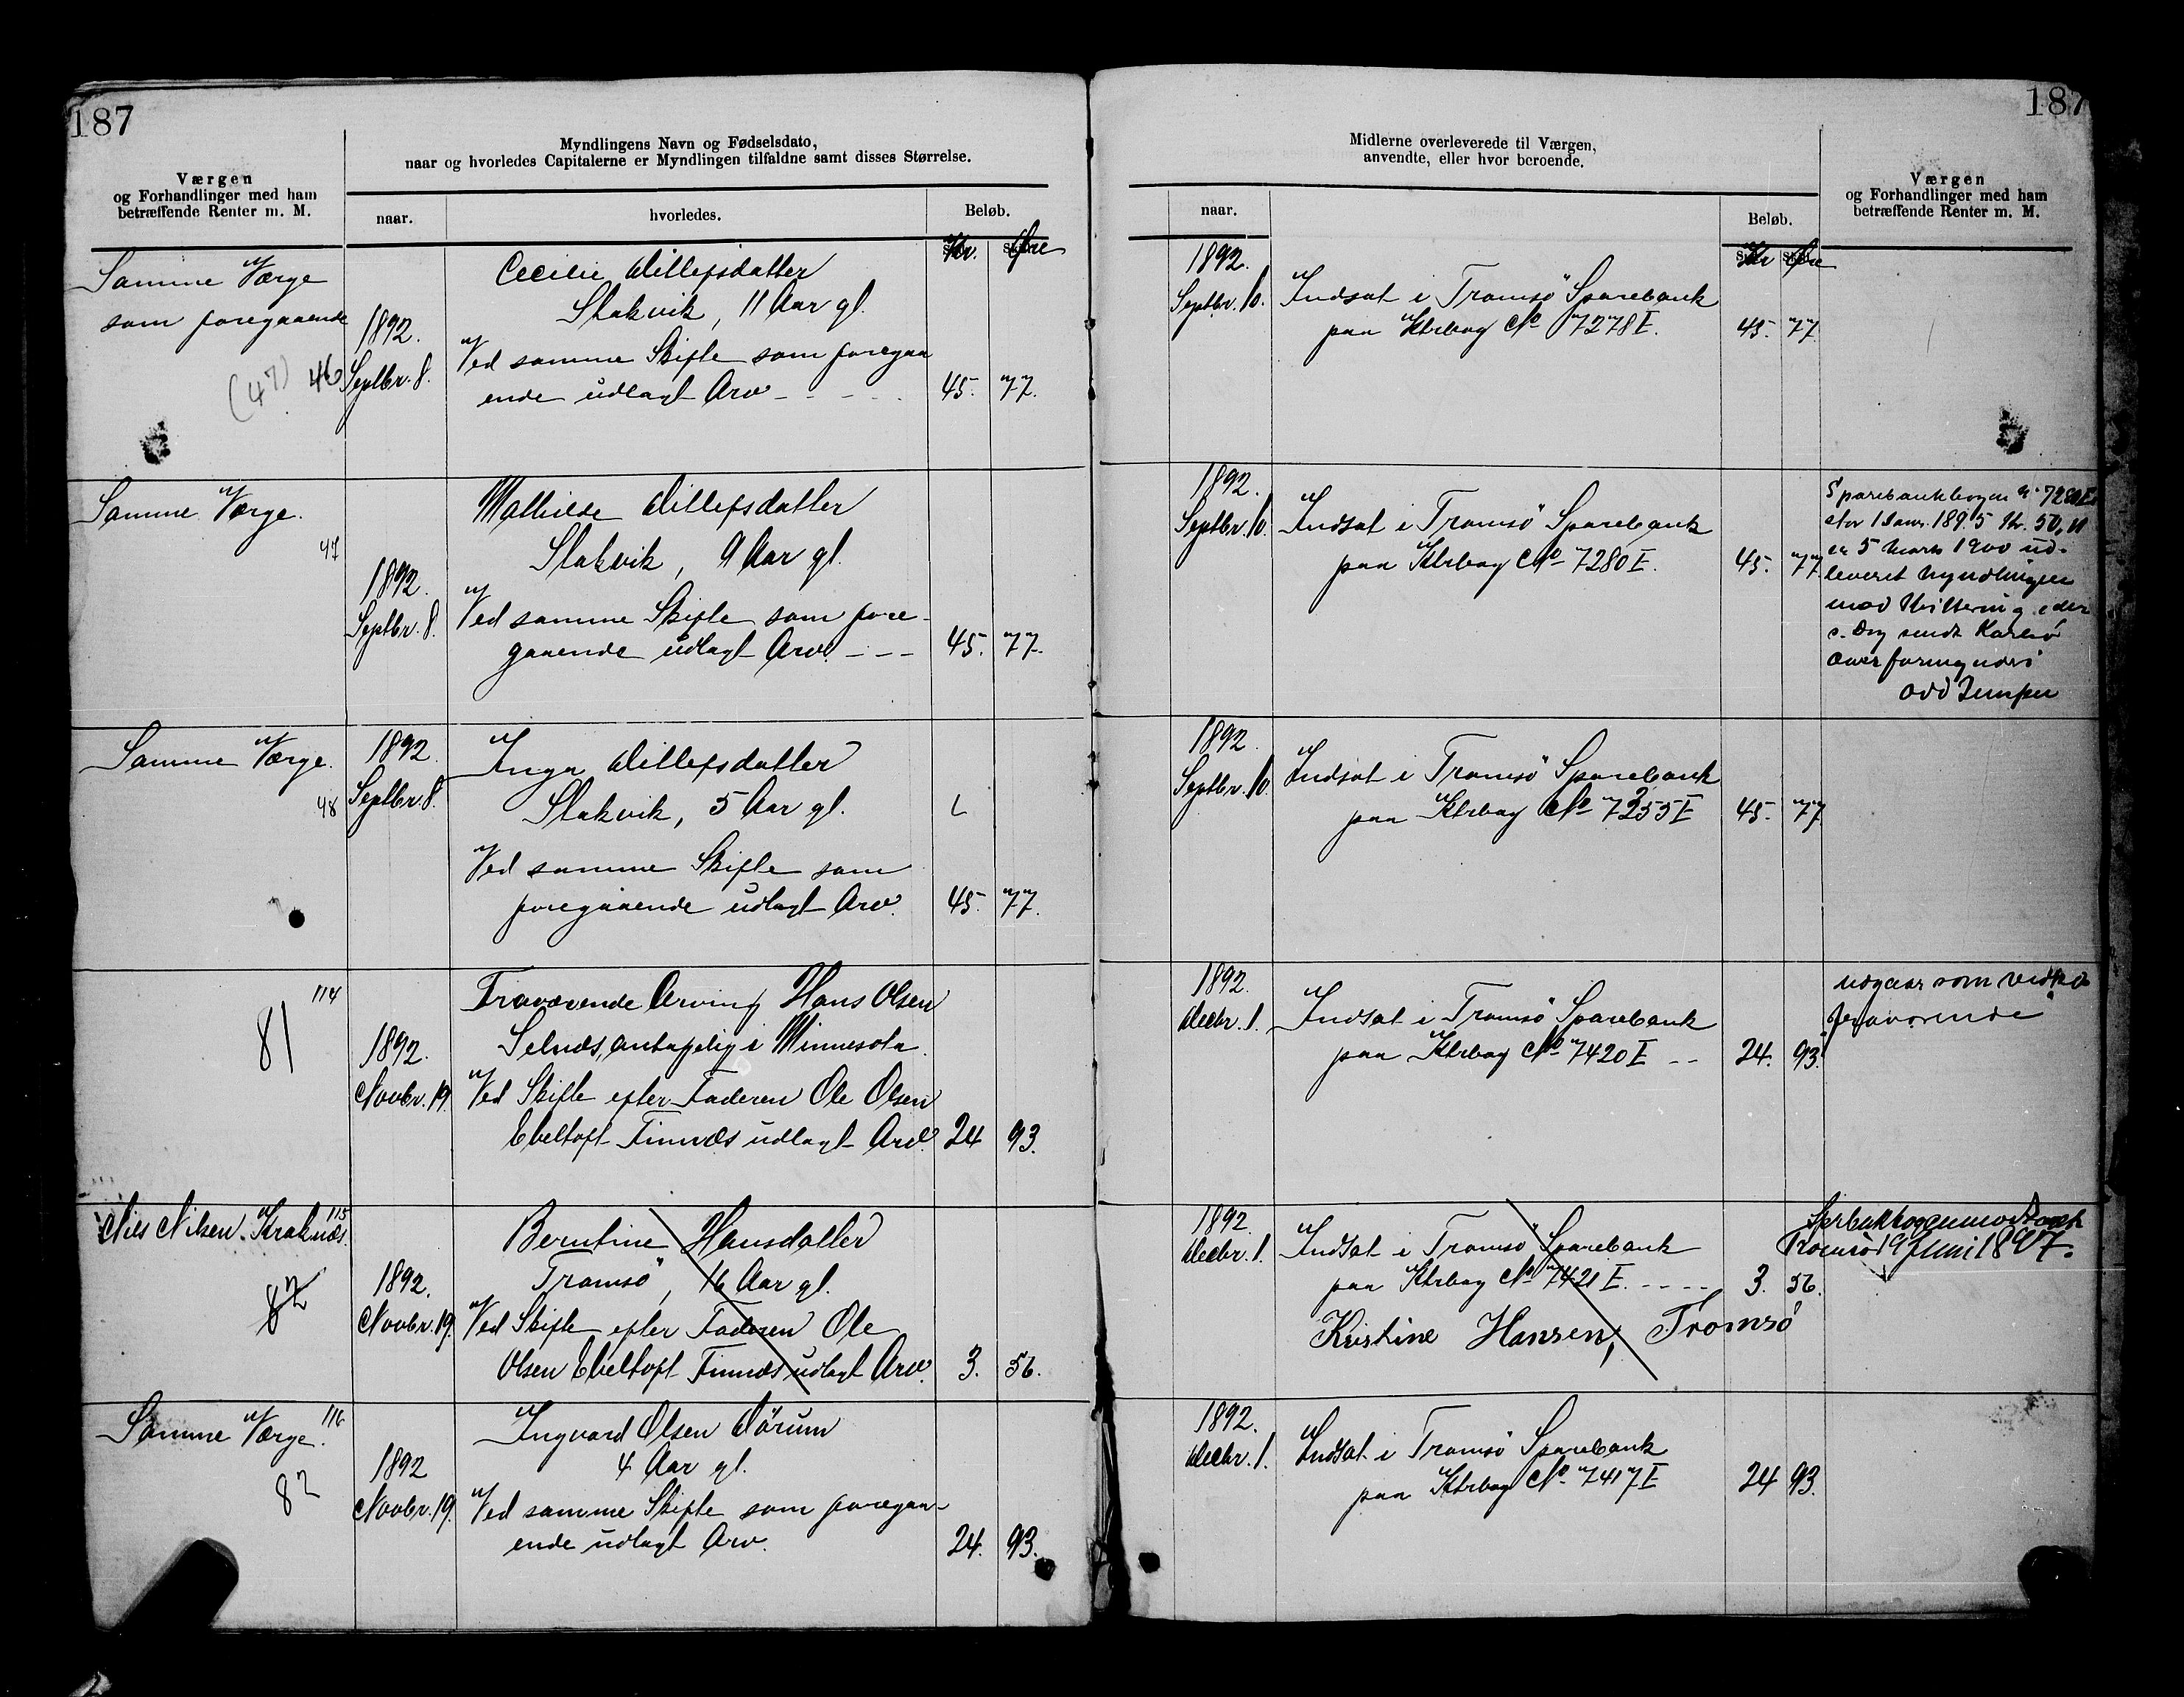 187
Værgen
og Forhandlinger med ham
betræffende Renter m. M.
Myndlingens Navn og Fødselsdato,
naar og hvorledes Capitalerne er Myndlingen tilfaldne samt disses Størrelse.
naar.
hvorledes.
Beløb.
Kr. Øre
Samme Værge
som foregaaende
(47) 46
1892.
Septbr. 8.
Cecilie Dillefsdatter
Slakvik, 11 Aar gl.
Ved samme Skifte som foregaa
ende udlagt Arv - - - - 45. 77.
Samme Værge.
47
1892.
Septbr. 8.
Mathilde Dillefsdatter
Slakvik, 9 Aar gl.
Ved samme Skifte som fore-
gaaende udlagt Arv. - - - 45. 77.
Samme Værge.
48
1892.
Septbr. 8.
Inga Dillefsdatter
Slakvik, 5 Aar gl.
Ved samme Skifte som
foregaaende udlagt Arv. 45. 77.
114
81
1892.
Novbr. 19.
Fraværende Arving Hans Olsen
Selnæs, antagelig i Minnesota.
Ved Skifte efter Faderen Ole Olsen
Ebeltoft Finnæs udlagt Arv. 24 93.
Nils Nilsen Kraknæs.
115
82
1892.
Novbr. 19.
Berntine Hansdatter
Tromsö, 16 Aar gl.
Ved Skifte efter Faderen Ole
Olsen Ebeltoft Finnæs udlagt Arv. 3. 56.
Samme Værge.
116
82
1892
Novbr. 19.
Ingvard Olsen Dörum
4 Aar gl.
Ved samme Skifte som foregaa-
ende udlagt Arv. 24. 93.
187
Midlerne overleverede til Værgen,
anvendte, eller hvor beroende.
naar.
Beløb.
Kr Øre
Værgen
og Forhandlinger med ham
betræffende Renter m. M.
1892.
Septbr. 10.
Indsat i Tromsö Sparebank
paa Ktrbog No 7278 E. 45. 77.
1892.
Septbr. 10.
Indsat i Tromsö Sparebank
paa Ktrbog No 7280 E. 45. 77
Sparebankbogen No 7280 E
stor 1 Janr. 1895 Kr. 50,
er 5 Marts 1900 ud-
leveret Myndlingen
mod Kvittering
sendt Karlsö
Overformynderi
1892
Septbr. 10.
Indsat i Tromsö Sparebank
paa Ktrbog No 7255 E 45. 77
1892.
Decbr. 1.
Indsat i Tromsö Sparebank
paa Ktrbog No 7420 E - - 24. 93.
udgaar som
fraværende
1892.
Decbr. 1.
Indsat i Tromsö Sparebank
paa Ktrbog No 7421 E. - - - - 3. 56.
Kristine Hansen, Tromsö
Tromsö 19 Juni 1897.
1892.
Decbr. 1.
Indsat i Tromsö Sparebank
paa Ktrbog No 7417 E 24 93.